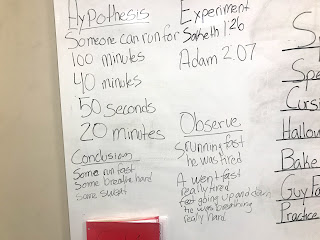 Hypothesis
Someone can run for
100 minutes
40 minutes
50 seconds
20 minutes
Conclusion
Some run fast
Some breathe hard
Some sweat
Experiment
1:26
Adam 2.07
Observe
running fast
he was tired
A went fast
really tired
feet going up and down
he was breathing
really hard
S
Spe
Cursi
Hallow
Bake
Guy Fa
Practice